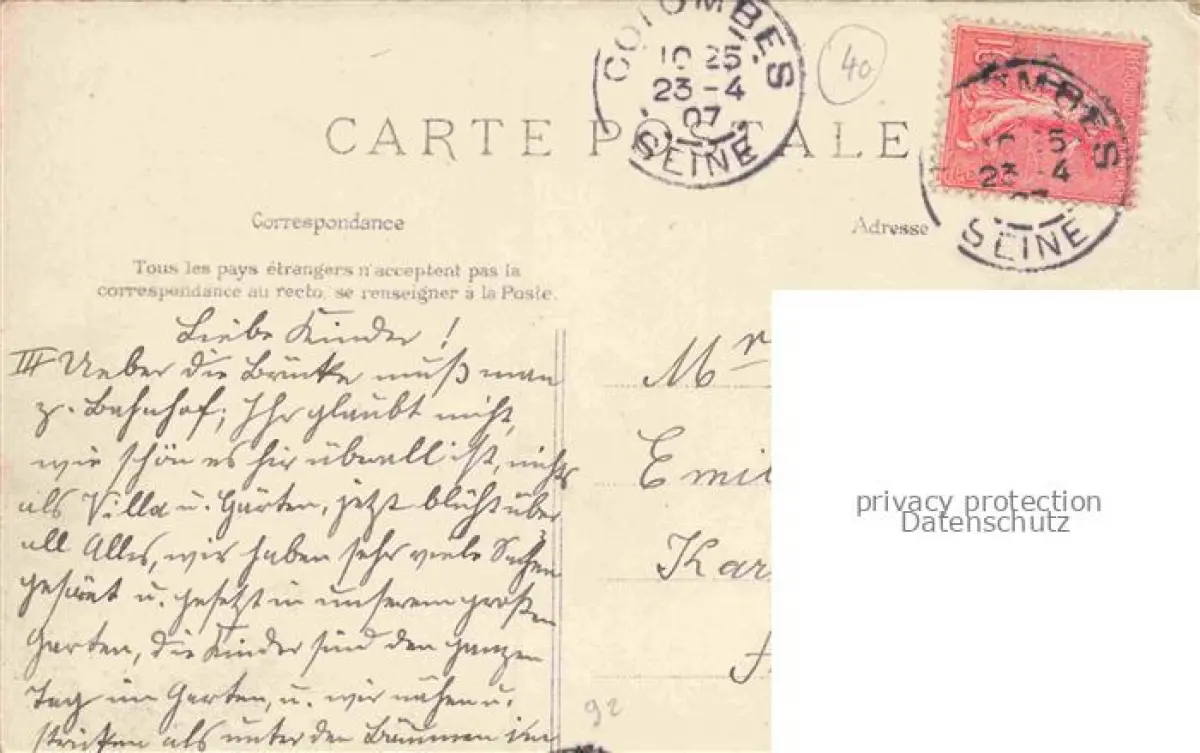 COLOMBES
10 25
23-4
07
SEINE
40
10c
CARTE POSTALE
MBES
5
23 -4
SEINE
Correspondance
Adresse
Tous les pays étrangers n'acceptent pas la
correspondance au recto, se renseigner à la Poste.
Liebe Kinder!
III Ueber die Brücke muß man
z. Bahnhof; Ihr glaubt nicht,
wie schön es hir überall ist, nichts
als Villa u. Gärten, jetzt blüht über
all Alles, wir haben sehr viele Sachen
gesäet u. gesetzt in unserem großen
Garten, die Kinder sind den ganzen
Tag im Garten, u. wir nähen u.
stricken als unter den Bäumen im
Mr
Emi
Kar
privacy protection
Datenschutz
92